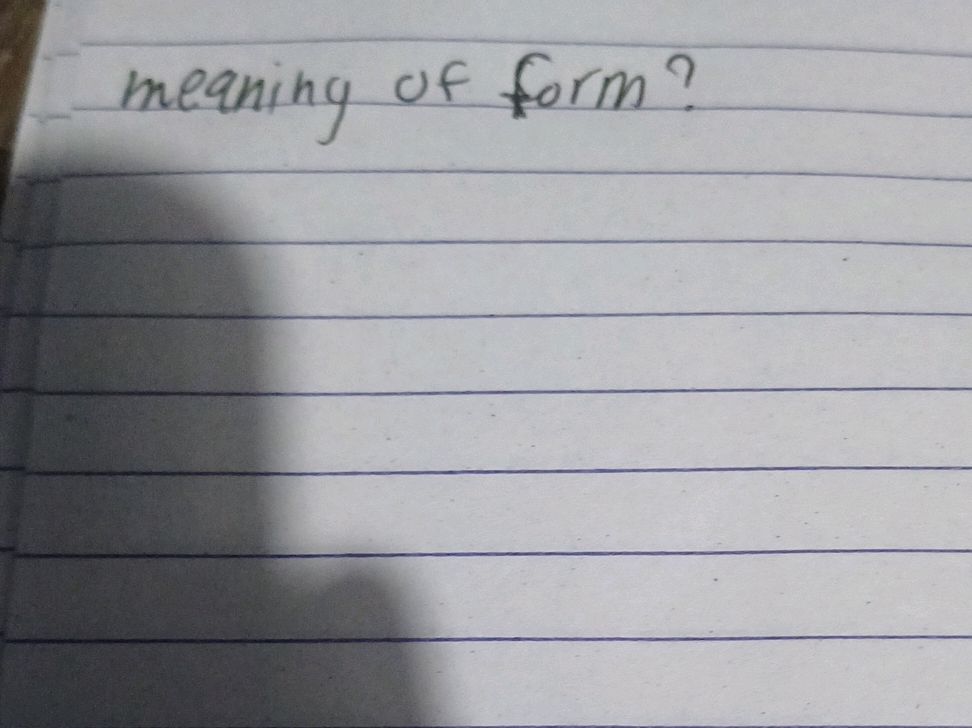 meaning of form?